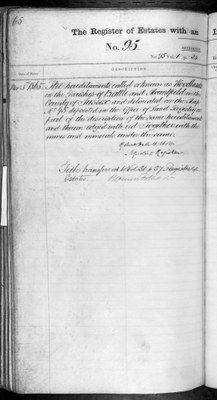 65
The Register of Estates with an
No. 95.
DESCRIPTION.
1865
All hereditaments called or known as Woodlands
in the Parishes of Battle and Mountfield in the
County of Sussex and delineated on the Map
No 95 deposited in the Office of Land Registry as
part of the description of the same hereditaments
and thereon edged with red Together with the
mines and minerals under the same.
Registrar
Title transferred to Vol.